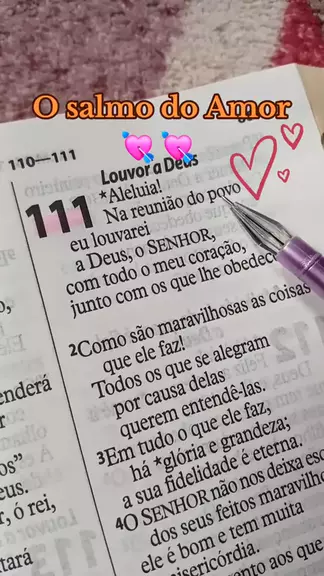 O salmo do Amor
110—111
Louvor a Deus
111 *Aleluia!
Na reunião do povo
eu louvarei
a Deus, o SENHOR,
com todo o meu coração,
junto com os que lhe obedece
2Como são maravilhosas as coisas
que ele faz!
Todos os que se alegram
por causa delas
querem entendê-las.
3Em tudo o que ele faz,
há *glória e grandeza;
a sua fidelidade é eterna.
4O SENHOR não nos deixa esq
dos seus feitos maravilho
ele é bom e tem muita
misericórdia.
ento aos que
enderá
os”
eus.
r, ó rei,
tará